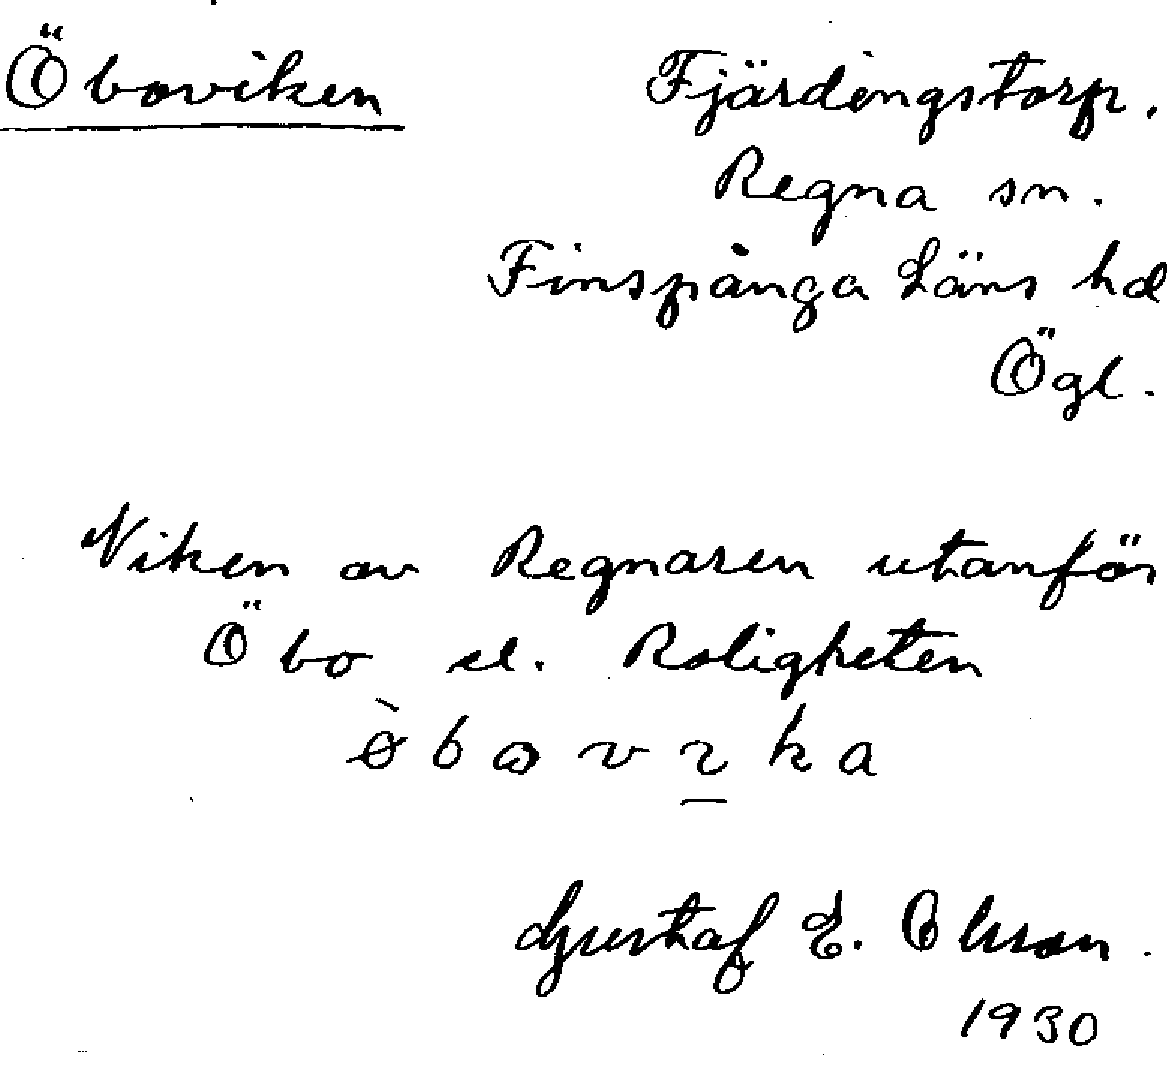 Öboviken Fjärdingstorp.
Regna sn.
Finspånga Läns hd
Ögl.
Viken av Regnaren utanför
Öbo el. Roligheten
Gustaf E. Olsson.
1930